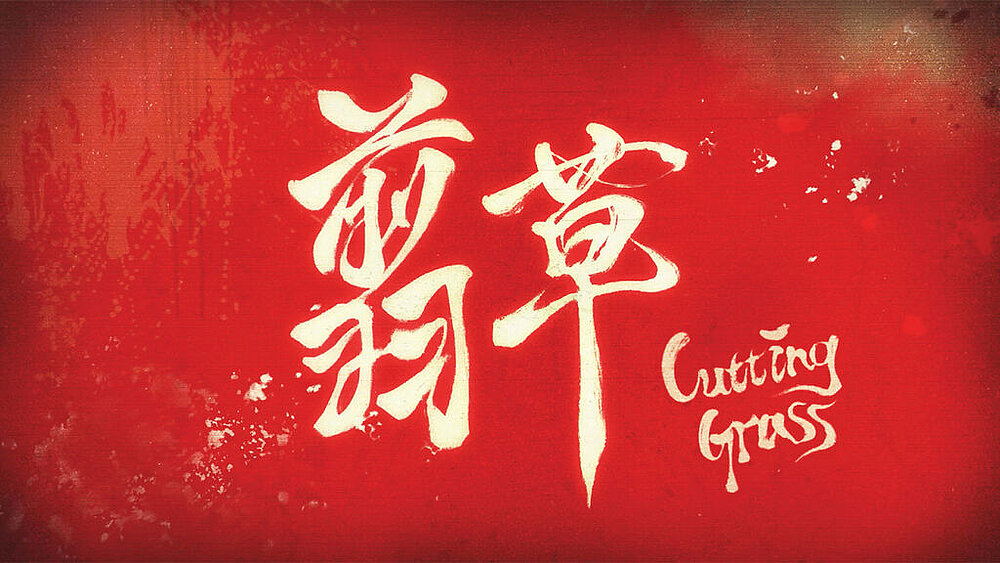 翦草
Cutting
Grass